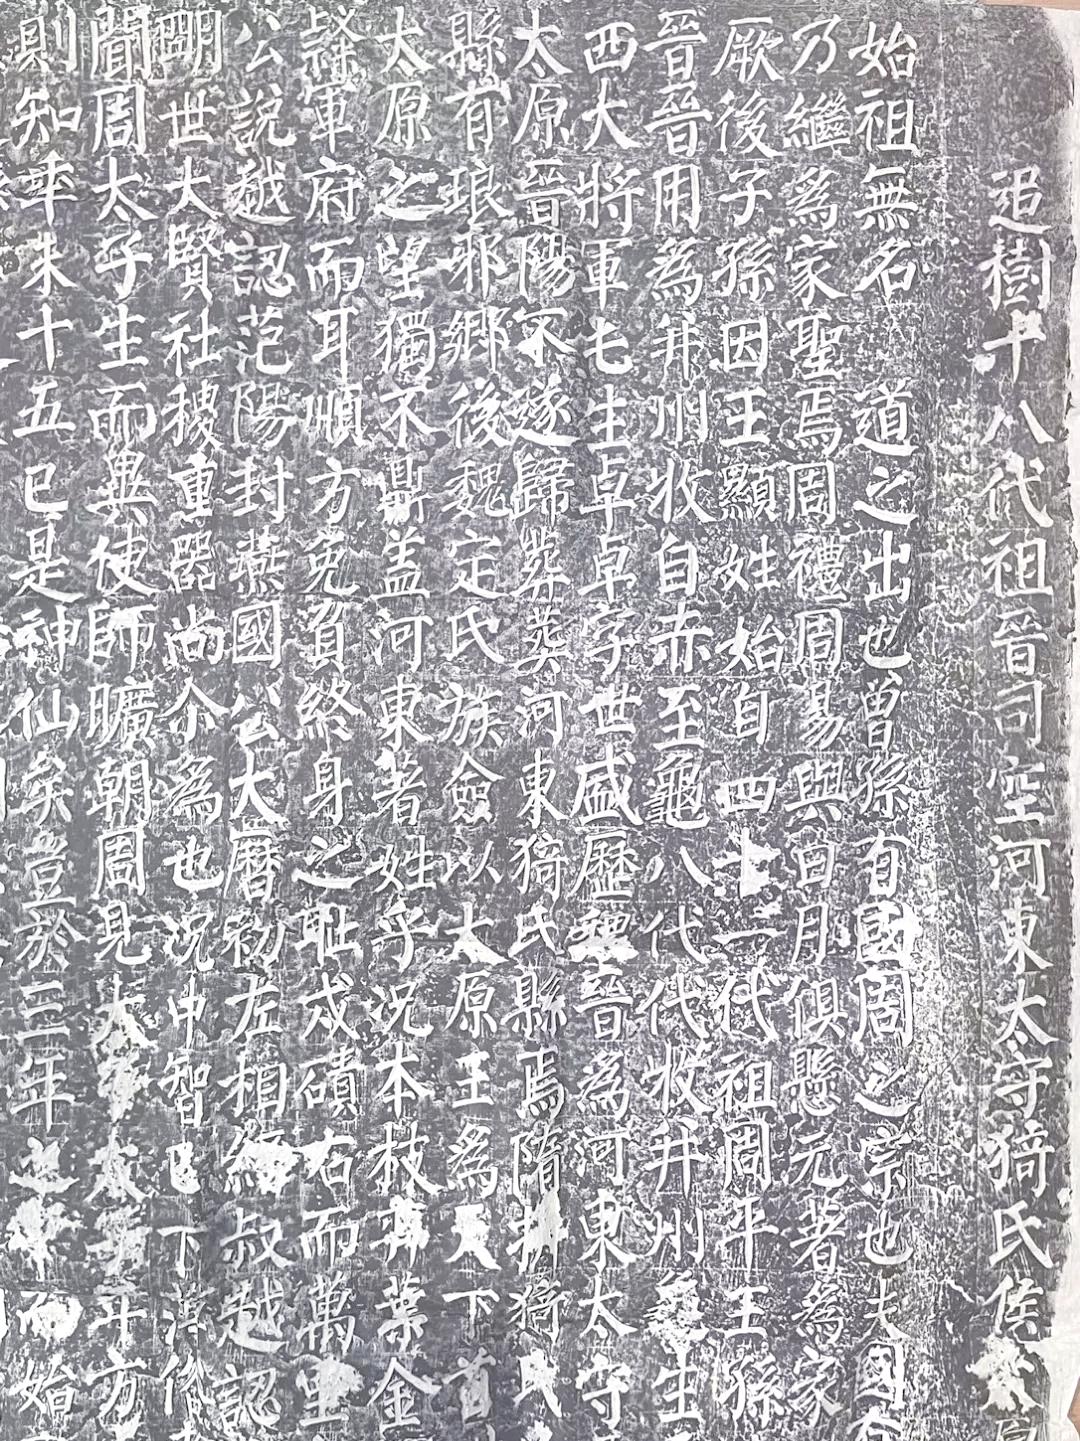 追樹十八代祖晉司空河東太守猗氏侯太原
始祖無名 道之出也曾孫有國周之宗也夫國有
乃繼為家聖焉周禮周易與日月俱懸元著為家
厥後子孫因王顯姓始自 四十一代祖周平王孫
晉晉用為并州牧自赤至龜八代代牧并州龜生
西大將軍七生卓卓字世盛歷魏晉為河東太守
太原晉陽不遂歸葬葬河東猗氏縣焉隋猗氏
縣有琅耶鄉後魏定氏族僉以太原王為天下首
太原之望獨不鼎盖河東著姓乎况本枝葉金
隸軍府而耳順方免負終身之恥戍磧右而萬里
公說越認范陽封燕國公大曆初左相縉叔越認
明世大賢社稷重器尚介為也况中智已下薄俗
聞周太子生而異使師曠朝周見太子太子方
則知年未十五已是神仙矣豈於三年之始